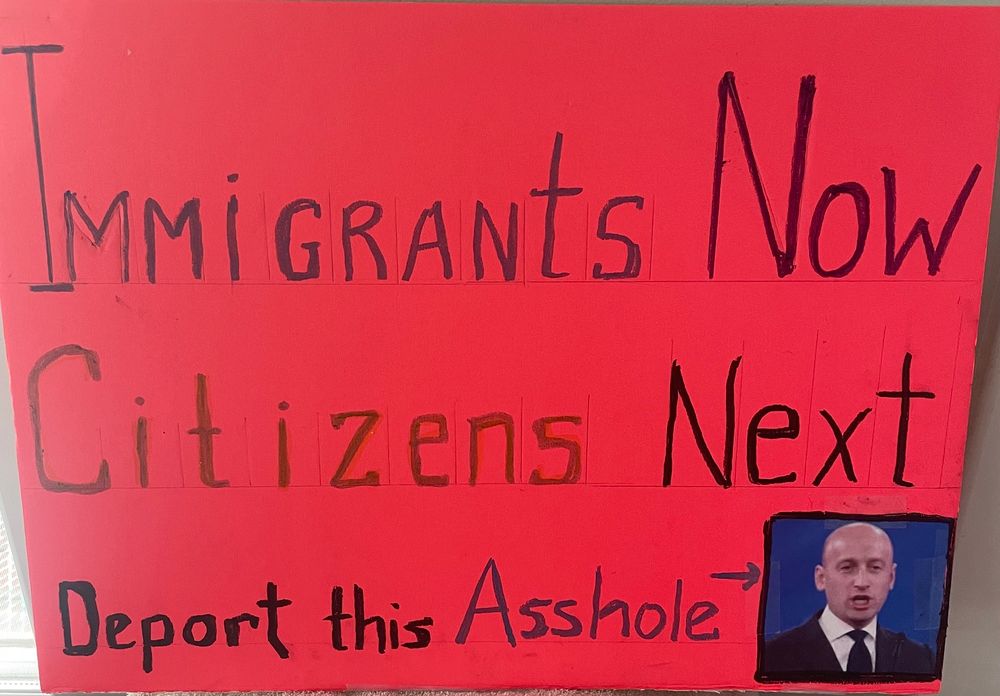 Immigrants Now
Citizens Next
Deport this Asshole →